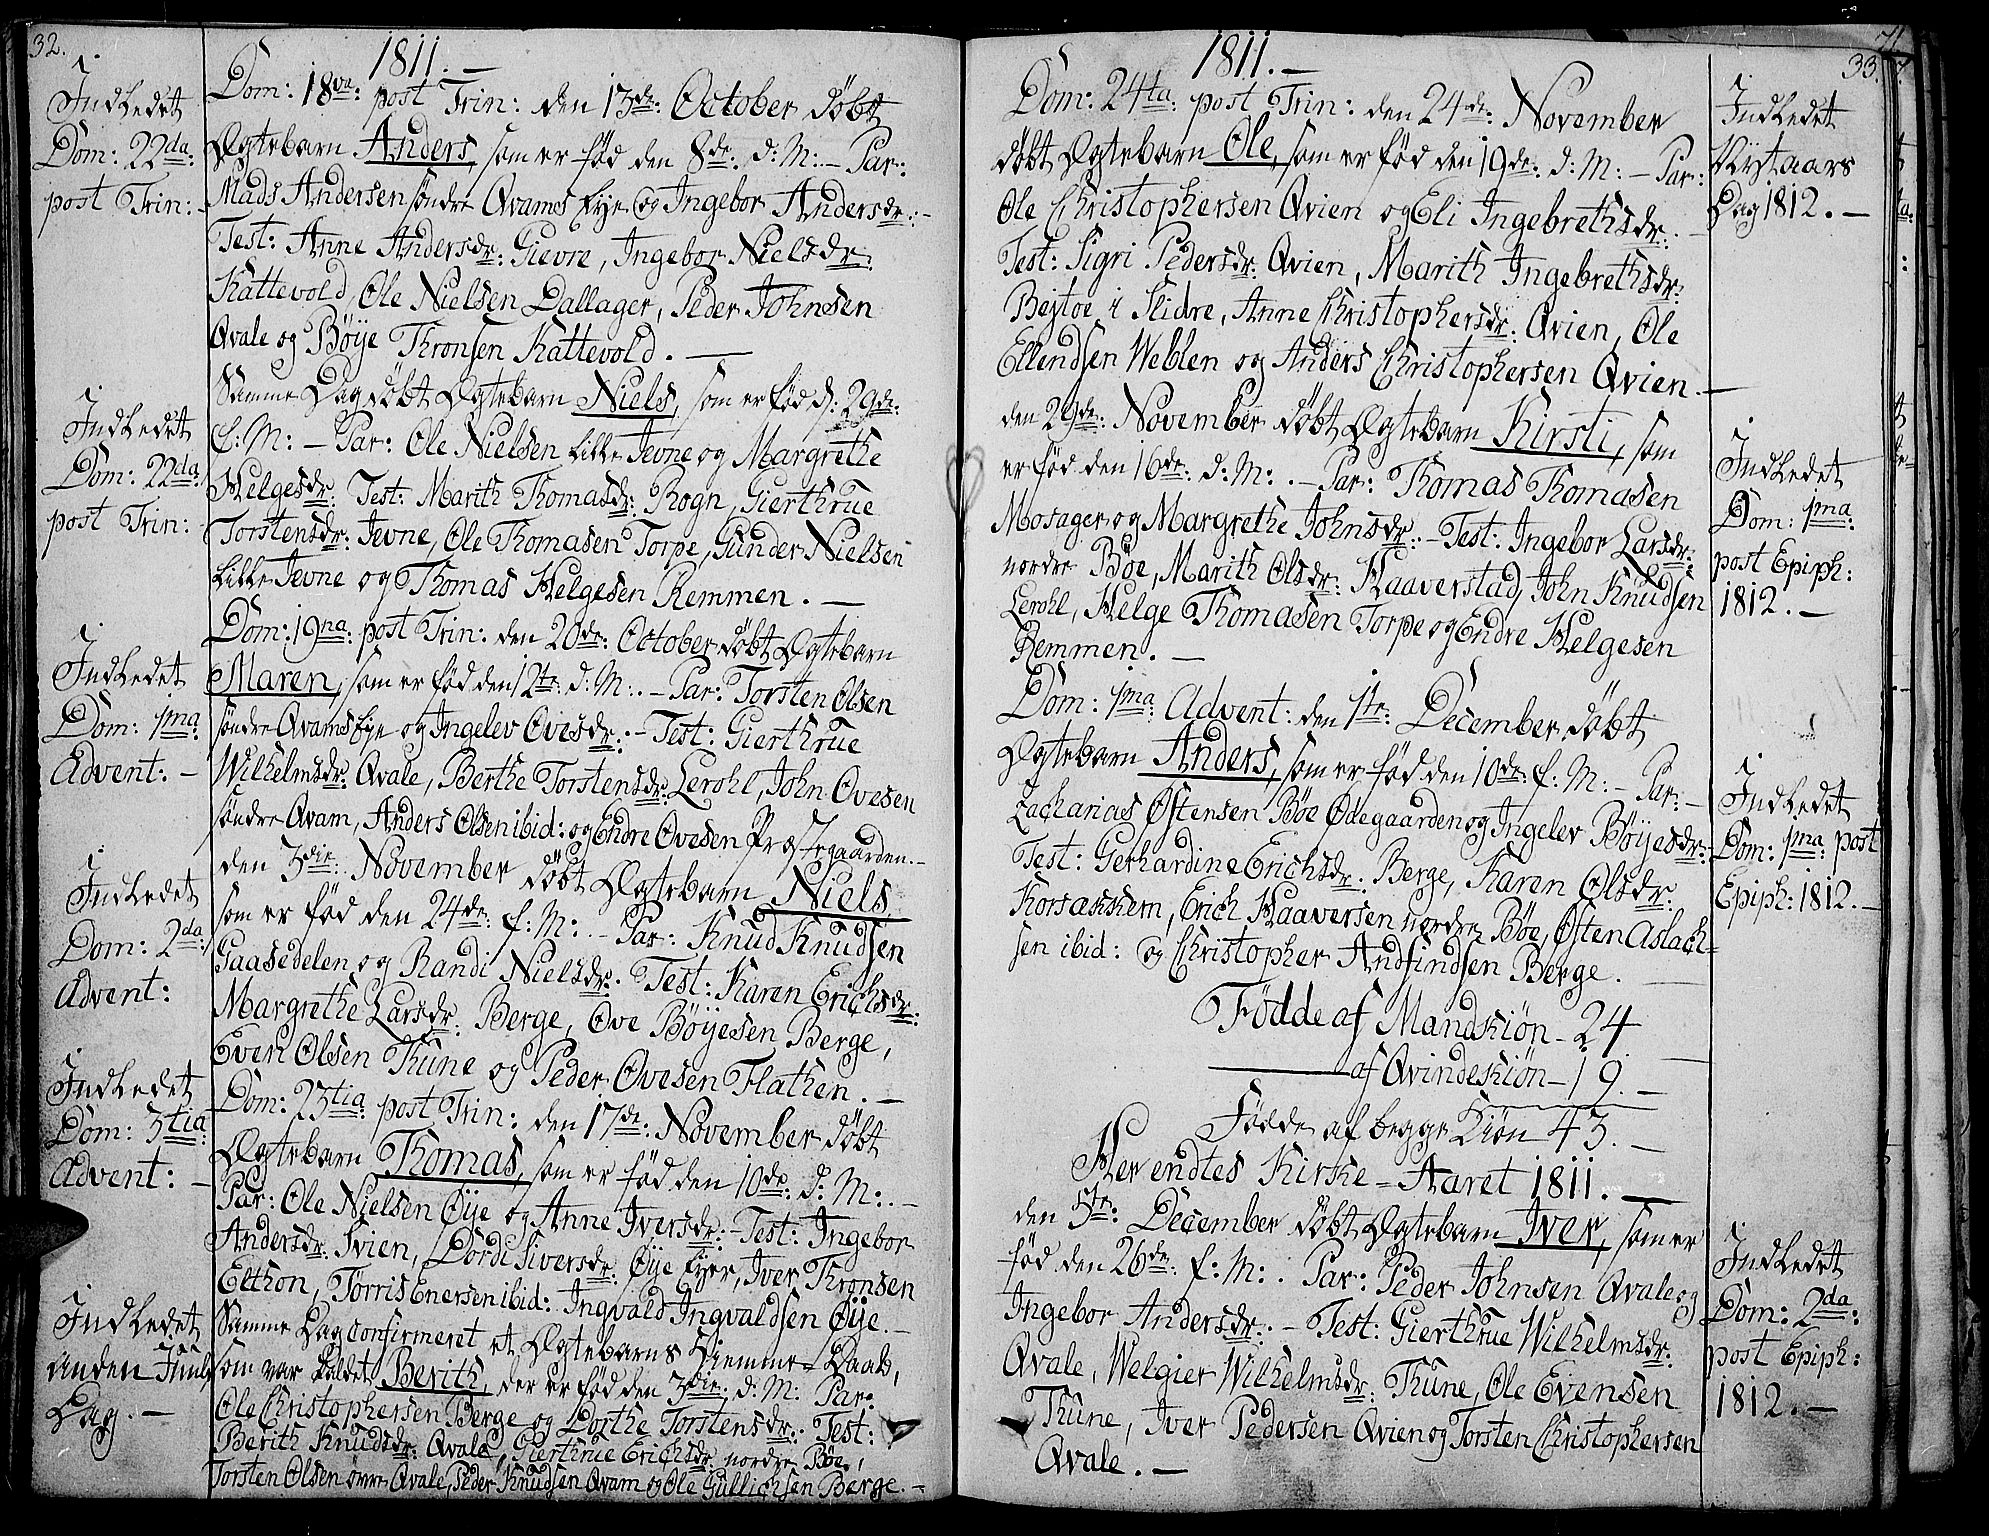 32.
1811. –
Indledet
Dom: 22da:
post Trin: –
Dom: 18va: post Trin: den 13de: October døbt
Ægtebarn Anders, som er fød den 8de: d: M: – Par:
Mads Andersen søndre Qvams Eye og Ingebor Andersdr: –
Test: Anne Andersdr: Gievre, Ingebor Nielsdr:
Kattevold, Ole Nielsen Dallager, Peder Johnsen
Qvale og Böye Thronsen Kattevold. –
Indledet
Dom: 22da:
post Trin:
Samme Dag døbt Ægtebarn Niels, som er fød d: 29de:
f: M: – Par: Ole Nielsen Lille Jevne og Margrethe
Helgesdr: Test: Marith Thomasdr: Rogn, Gierthrue
Torstensdr: Jevne, Ole Thomasen Torpe, Gunder Nielsen
Lille Jevne og Thomas Helgesen Remmen. –
Indledet
Dom: 1ma
Advent: –
Dom: 19na: post Trin: den 20de: October døbt Ægtebarn
Maren, som er fød den 12te: d: M: . – Par: Torsten Olsen
søndre Qvams Eye og Ingelev Ovesdr: – Test: Gierthrue
Wilhelmsdr: Qvale, Berthe Torstensdr: Lerohl, John Ovesen
søndre Qvam, Anders Olsen ibid: og Endre Ovesen Præstegaarden. –
Indledet
Dom: 2da:
Advent:
den 3die: November døbt Ægtebarn Niels,
som er fød den 24de: f: M: – Par: Knud Knudsen
Gaasedelen og Randi Nielsdr: Test: Karen Erichsdr:
Margrethe Larsdr: Berge, Ove Böyesen Berge,
Even Olsen Thune og Peder Ovesen Flathen. –
Indledet
Dom: 3tia:
Advent: –
Dom: 23tia: post Trin: den 17de: November døbt
Ægtebarn Thomas, som er fød den 10de: d: M: . –
Par: Ole Nielsen Øye og Anne Iversdr: – Test: Ingebor
Andersdr: Svien, Dordi Siversdr: Øye Eyer, Iver Thronsen
Elthon, Tørris Enersen ibid: Ingvald Ingvaldsen Øye. –
Indledet
anden Juul
Dag. –
Samme Dag confirmeret et Ægtebarns Hiemme-Daab,
som var kaldet Berith, der er fød den 3die: d: M: Par:
Ole Christophersen Berge og Dorthe Torstensdr: Test:
Berith Knudsdr: Qvale, Gierthrue Erichsdr: nordre Böe,
Torsten Olsen øvre Qvale, Peder Knudsen Qvam og Ole Gullichsen Berge. –
33.
1811. –
Dom: 24ta: post Trin: den 24de: November
døbt Ægtebarn Ole, som er fød den 19de: d: M: – Par:
Ole Christophersen Qvien og Eli Ingebrethsdr: –
Test: Sigri Pedersdr: Qvien, Marith Ingebrethsdr:
Bejtoe i Slidre, Anne Christophersdr: Qvien, Ole
Ellendsen Weblen og Anders Christophersen Qvien. –
Indledet
Nytaars
Dag 1812. –
den 29de: November døbt Ægtebarn Kirsti, som
er fød den 16de: d: M: . – Par: Thomas Thomasen
Mosager og Margrethe Johnsdr: – Test: Ingebor Larsdr:
nordre Böe, Marith Olsdr: Haaverstad, John Knudsen
Lerohl, Helge Thomasen Torpe og Endre Helgesen
Remmen. –
Indledet
Dom: 1ma:
post Epiph:
1812. –
Dom: 1ma: Advent: den 1te: December døbt
Ægtebarn Anders, som er fød den 10de: f: M: – Par: –
Zacharias Østensen Böe Ødegaarden og Ingelev Böyesdr: –
Test: Gerhardine Erichsdr: Berge, Karen Olsdr:
Korsakkem, Erich Haaversen nordre Böe, Østen Aslach=
sen ibid: og Christopher Andfindsen Berge. –
Indledet
Dom: 1ma: post
Epiph: 1812. –
Födde af Mandkiön – 24
af Qvindekiön – 19. –
Födde af begge Kiön 43. –
Her endtes Kirke-Aaret 1811. –
den 5te: December døbt Ægtebarn Iver, som er
fød den 26de: f: M: . Par: Peder Johnsen Qvale og
Ingebor Andersdr: – Test: Gierthrue Wilhelmsdr:
Qvale, Welgier Wilhelmsdr: Thune, Ole Evensen
Thune, Iver Pedersen Qvien og Torsten Christophersen
Qvale. –
Indledet
Dom: 2da:
post Epiph:
1812. –